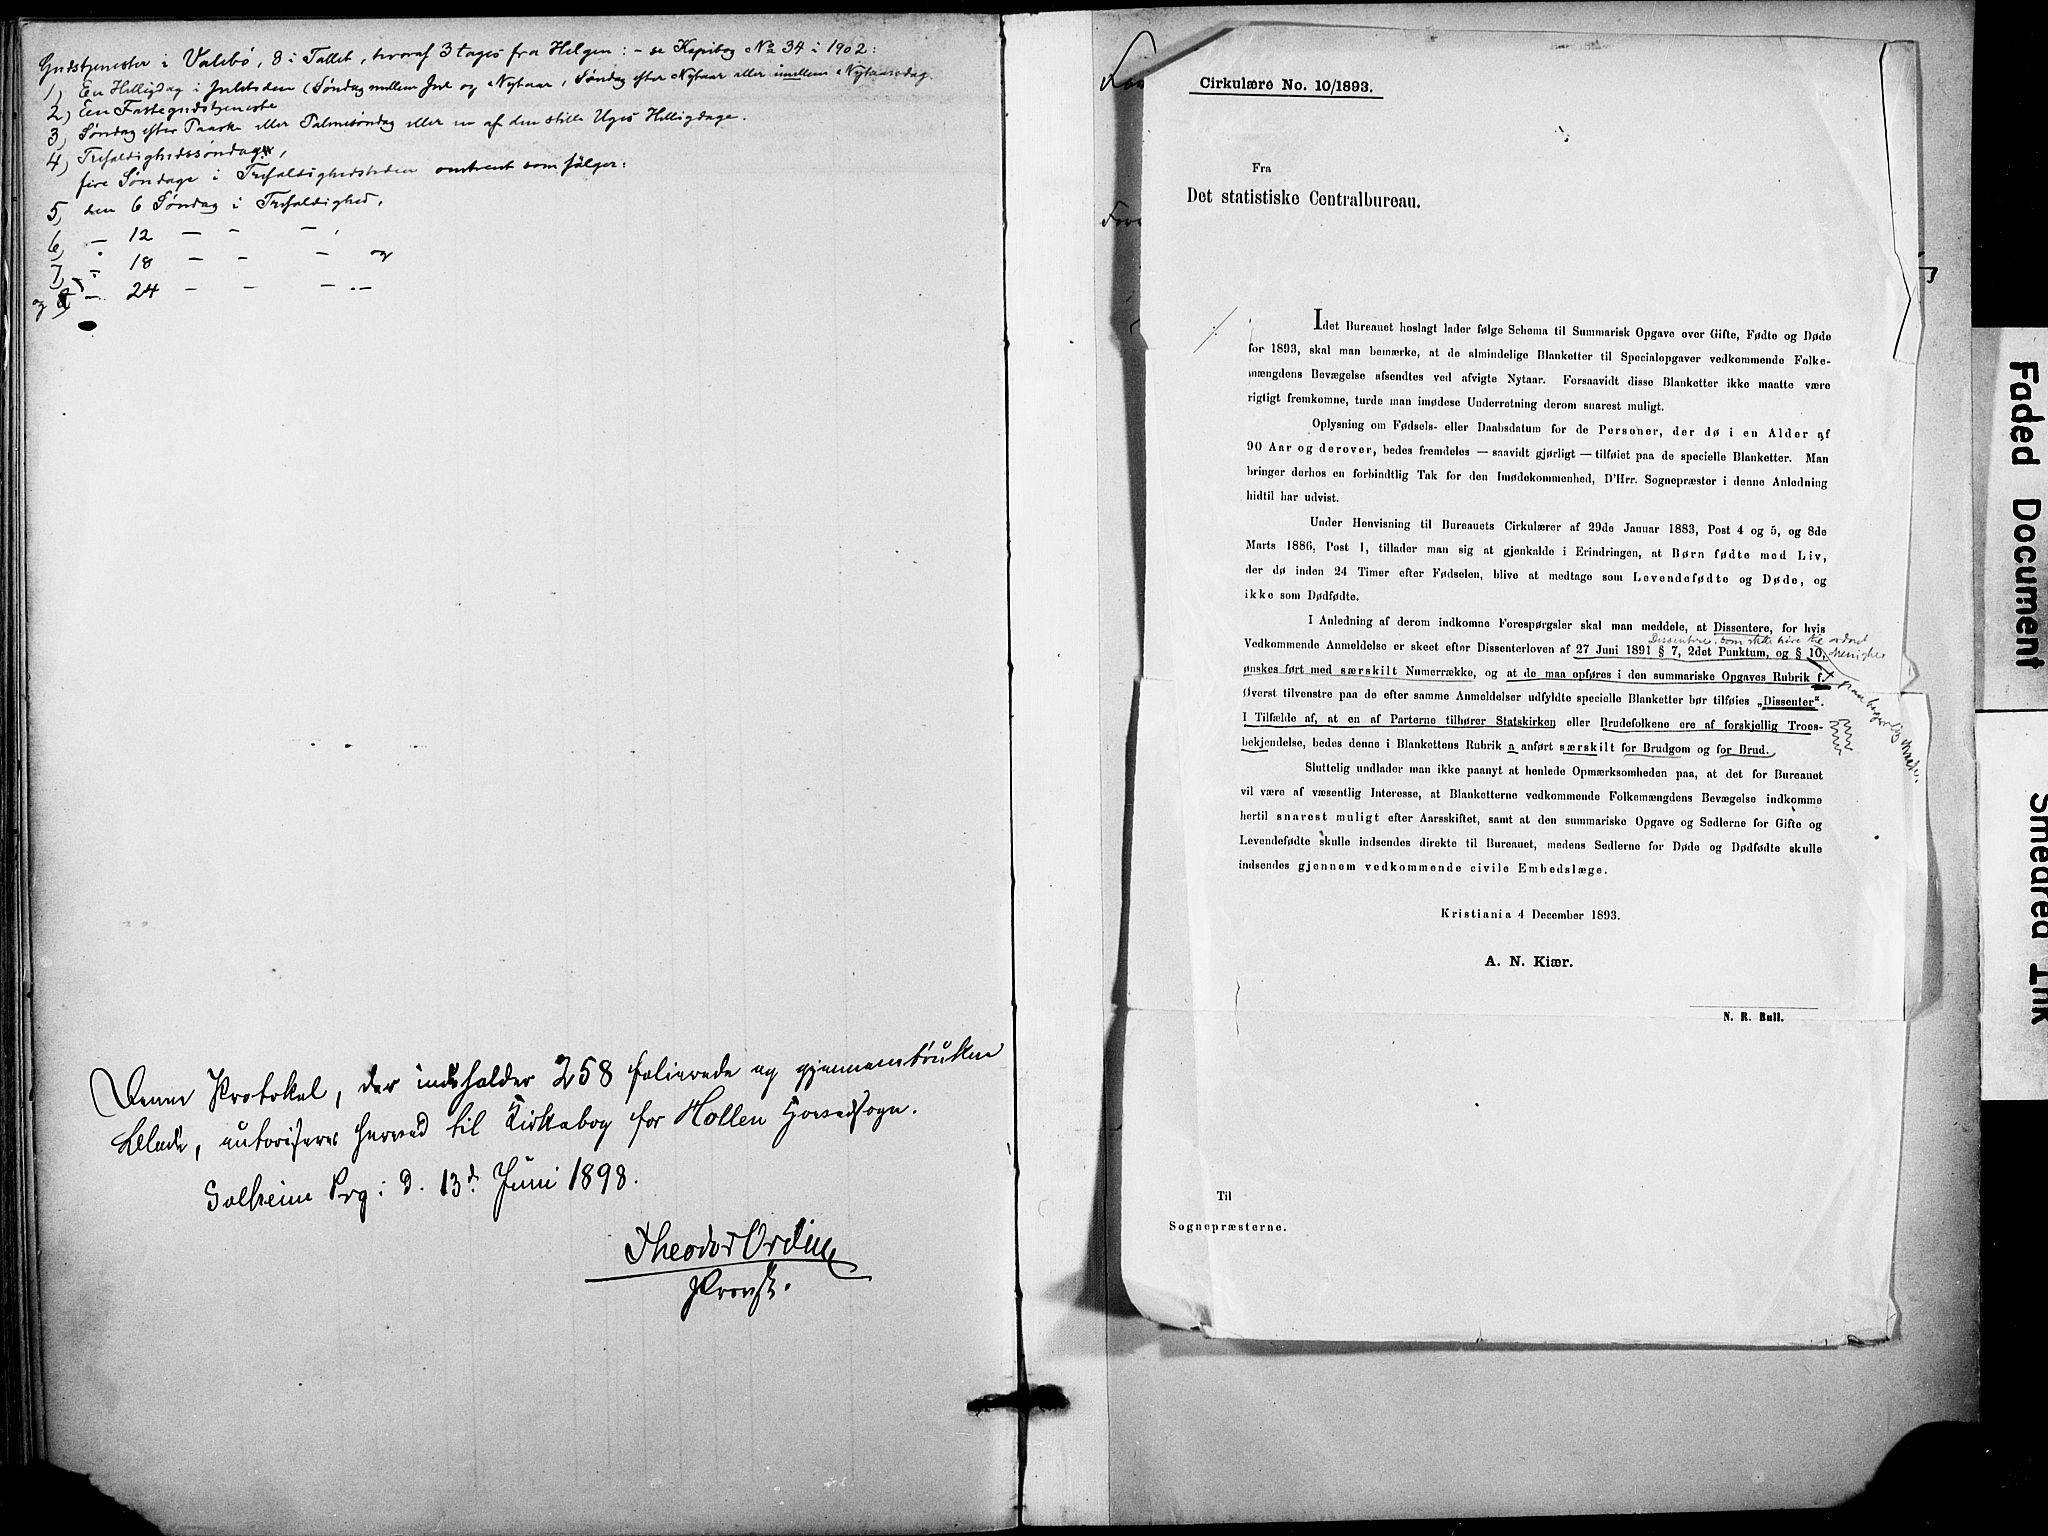 Gudstjenester i Valebö, 8 i Tallet, hvoraf 3 tages fra Helgen: - se Kopibog No 34 i 1902:
1) En Helligdag i Juletiden (Søndag mellem Jul og Nytaar, Søndag efter Nytaar eller imellem Nytaarsdag.
2) Een Fastegudstjeneste
3) Søndag efter Paaske eller Palmesøndag eller en af den stille Uges Helligdage.
4) Trefoldighedssøndag,
fire Søndage i Trefoldighedstiden omtrent som følger:
5) den 6 Søndag i Trefoldighed,
6) — 12 — - —,
7) - 18 - - - og
og 8) - 24 - - - —
Denne Protokol, der indeholder 258 folierede og gjennemtrukne
Blade, autoriseres herved til Kirkebog for Hollen Hovedsogn.
Solheim Prg: d. 13d Juni 1898.
Theodor Ording
Provst.
Cirkulære No. 10/1893.
Fra
Det statistiske Centralbureau.
Idet Bureauet hoslagt lader følge Schema til Summarisk Opgave over Gifte, Fødte og Døde
for 1893, skal man bemærke, at de almindelige Blanketter til Specialopgaver vedkommende Folke-
mængdens Bevægelse afsendtes ved afvigte Nytaar. Forsaavidt disse Blanketter ikke maatte være
rigtigt fremkomne, turde man imødese Underretning derom snarest muligt.
Oplysning om Fødsels- eller Daabsdatum for de Personer, der dø i en Alder af
90 Aar og derover, bedes fremdeles — saavidt gjørligt — tilføiet paa de specielle Blanketter. Man
bringer derhos en forbindtlig Tak for den Imødekommenhed, D'Hrr. Sognepræster i denne Anledning
hidtil har udvist.
Under Henvisning til Bureauets Cirkulærer af 29de Januar 1883, Post 4 og 5, og 8de
Marts 1886, Post 1, tillader man sig at gjenkalde i Erindringen, at Børn fødte med Liv,
der dø inden 24 Timer efter Fødselen, blive at medtage som Levendefødte og Døde, og
ikke som Dødfødte.
I Anledning af derom indkomne Forespørgsler skal man meddele, at Dissentere, for hvis
Dissentere, som ikke høre til ordnet
Vedkommende Anmeldelse er skeet efter Dissenterloven af 27 Juni 1891 § 7, 2det Punktum, og § 10, menighed
ønskes ført med særskilt Numerrække, og at de maa opføres i den summariske Opgaves Rubrik f.
Øverst tilvenstre paa de efter samme Anmeldelser udfyldte specielle Blanketter bør tilføies „Dissenter“.
I Tilfælde af, at en af Parterne tilhører Statskirken eller Brudefolkene ere af forskjellig Troes-
bekjendelse, bedes denne i Blankettens Rubrik a anført særskilt for Brudgom og for Brud.
Sluttelig undlader man ikke paanyt at henlede Opmærksomheden paa, at det for Bureauet
vil være af væsentlig Interesse, at Blanketterne vedkommende Folkemængdens Bevægelse indkomme
hertil snarest muligt efter Aarsskiftet, samt at den summariske Opgave og Sedlerne for Gifte og
Levendefødte skulle indsendes direkte til Bureauet, medens Sedlerne for Døde og Dødfødte skulle
indsendes gjennem vedkommende civile Embedslæge.
Kristiania 4 December 1893.
A. N. Kiær.
N. R. Bull.
Til
Sognepræsterne.
Faded Document
Smeared Ink